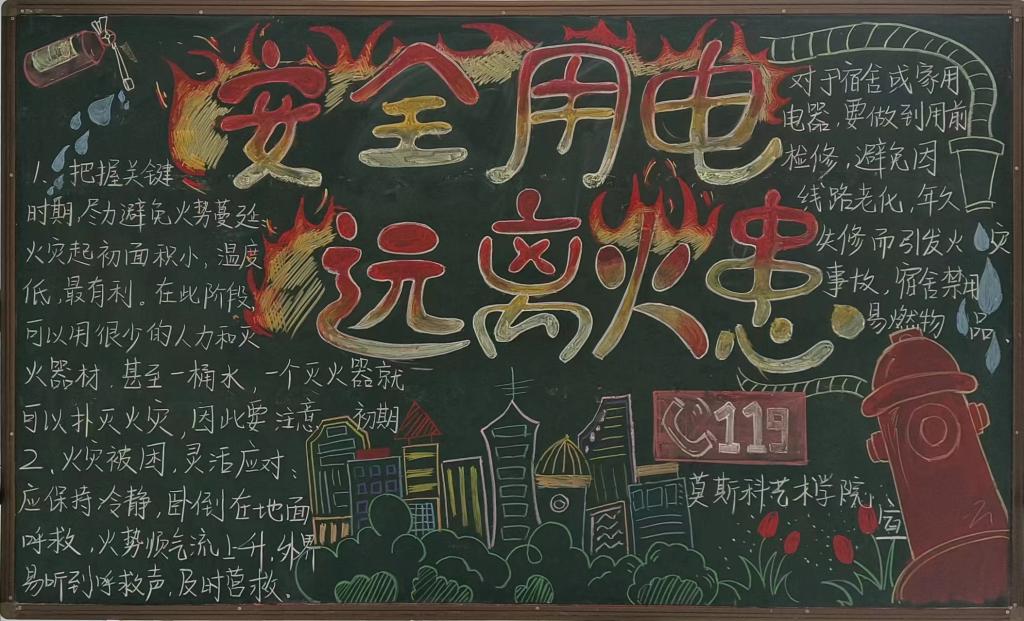 安全用电
远离火患
1. 把握关键
时期,尽力避免火势蔓延
火灾起初面积小,温度
低,最有利。在此阶段
可以用很少的人力和灭
火器材.甚至一桶水,一个灭火器就
可以扑灭火灾,因此要注意 初期
2、火灾被困,灵活应对、
应保持冷静,卧倒在地面
呼救,火势顺气流上升,外界
易听到呼救声,及时营救、
对于宿舍或家用
电器,要做到用前
检修,避免因
线路老化,年久
失修而引发火灾
事故,宿舍禁用
易燃物品。
119
莫斯科艺术学院
宣